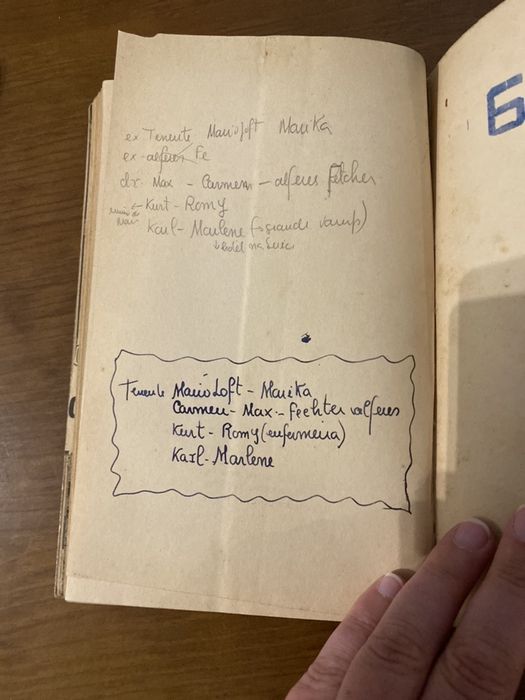 ex Tenente Marioloft Marika
ex-alferes Fe
dr. Max - Carmem - alferes Fetcher
Kurt - Romy
Karl - Marlene (grande vamp)
Б
Tenente Mario Loft - Marika
Carmen - Max - Fechter alferes
Kurt - Romy (enfermeira)
Karl - Marlene